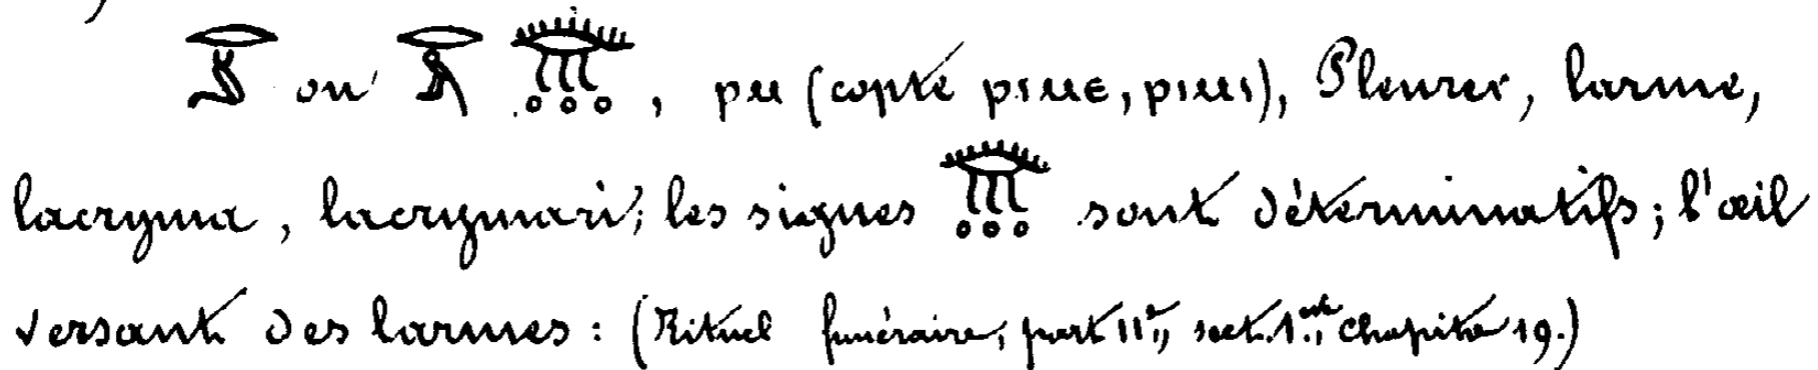 𓂋𓅓 ou 𓂋𓅓 𓁿, ⲣⲙ (copte ⲣⲓⲙⲉ, ⲣⲓⲙⲓ), Pleurer, larme,
lacryma, lacrymari; les signes 𓁿 sont déterminatifs; l'œil
versant des larmes : (Rituel funéraire, part. IIᵉ, sect. 1ᵉʳᵉ, chapitre 19.)